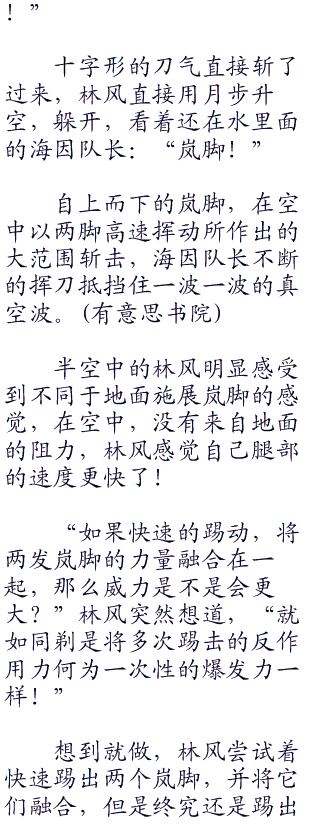 ！”
十字形的刀气直接斩了
过来，林风直接用月步升
空，躲开，看着还在水里面
的海因队长：“岚脚！”
自上而下的岚脚，在空
中以两脚高速挥动所作出的
大范围斩击，海因队长不断
的挥刀抵挡住一波一波的真
空波。(有意思书院)
半空中的林风明显感受
到不同于地面施展岚脚的感
觉，在空中，没有来自地面
的阻力，林风感觉自己腿部
的速度更快了！
“如果快速的踢动，将
两发岚脚的力量融合在一
起，那么威力是不是会更
大？”林风突然想道，“就
如同剃是将多次踢击的反作
用力何为一次性的爆发力一
样！”
想到就做，林风尝试着
快速踢出两个岚脚，并将它
们融合，但是终究还是踢出